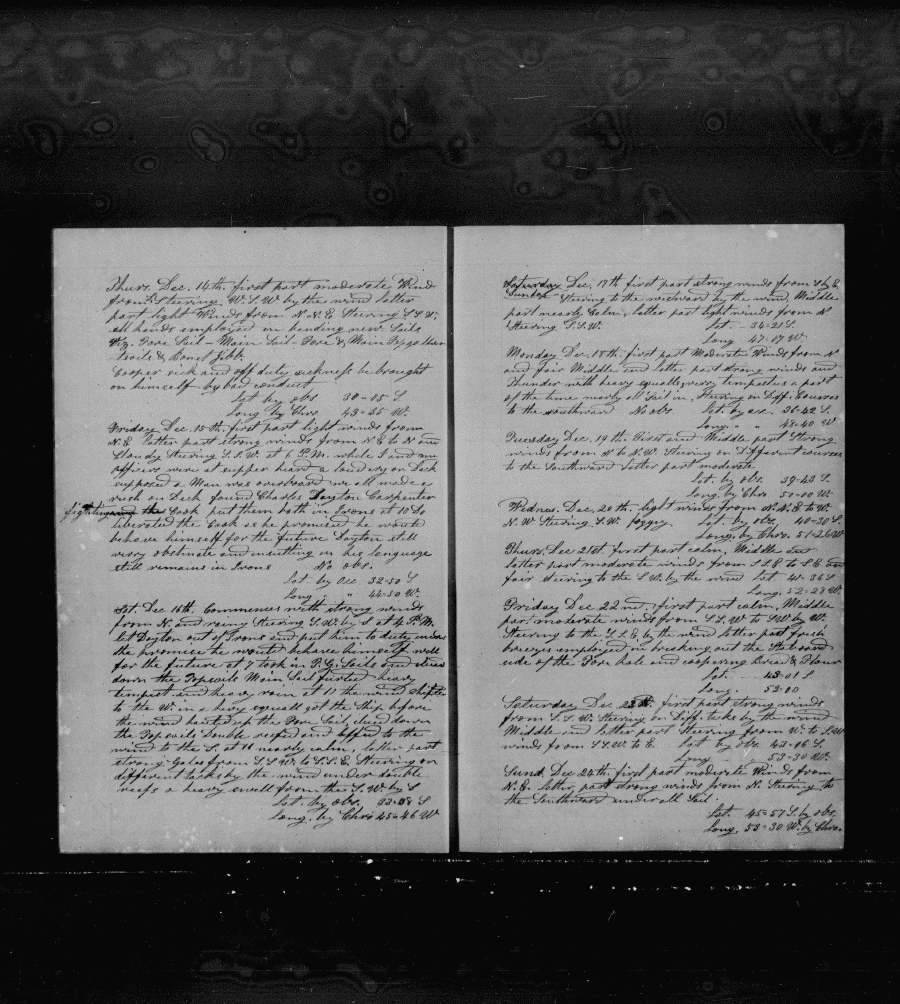 Thurs. Dec. 14th. first part moderate Wind
from S Steering W.S.W by the wind latter
part light Winds from N.N.E Steering S.S.W.
all hands employed in bending new Sails
Viz. Fore Sail - Main Sail - Fore & Main Top gallan
- tsails & Bonet Jibb.
Cooper sick and off duty sickness he brought
on himself by bad conduct
Lat by obs 30-05 S
Long by Chro 43-35 W.
Friday Dec. 15th. first part light winds from
N.E. latter part strong winds from N.E to N and
Cloudy Steering S.S.W. at 6 P.M. while I and my
officers were at supper heard a on Deck
supposed a Man was overboard we all made a
rush on Deck found Charles Dayton Carpenter
fighting and the Cook put them both in Irons at 10 Do
liberated the Cook as he promised he would
behave himself for the future Dayton still
verry obstinate and insulting in his language
still remains in Irons No obs.
Lat by acc 32-50 S
Long " " 44-50 W.
Sat. Dec 16th. Commences with strong winds
from N. and rainy Steering S.W. by S at 4 P.M.
let Dayton out of Irons and put him to duty under
the promise he would behave himself well
for the future at 7 took in P.G. Sails and
down the Topsails Main Sail furled heavy
tempest and heavy rain at 11 the wind shifted
to the W. in a hevy squall got the Ship before
the wind hauled up the Fore Sail clued down
the Top sails Double reefed and luffed to the
wind to the S. at 11 nearly calm, latter part
strong Gales from S.S.W. to S.S.E. Steering on
different tacks by the wind under double
reefs a heavy swell from the S.W. by S
Lat. by obs. 33-38 S
Long. by Chro 45=46 W
Saturday Dec. 17th first part strong winds from S by E.
Sunday Steering to the westward by the wind, Middle
part nearly Calm, latter part light winds from N
Steering S.S.W. Lat. - 34=21 S.
Long 47-17 W.
Monday Dec. 18th. first part Moderate Winds from N
and fair Middle and latter part strong winds and
Thunder with heavy squalls, verry tempestus a part
of the time nearly all Sail in, Steering on Diff. Courses
to the Southward No obs. Lat. by acc. 36-42 S.
Long. " " 48-40 W
Tuesday Dec. 19th First and Middle part Strong
winds from N to N.W. Steering on Different courses
to the Southward latter part moderate
Lat. by obs. 39-43 S.
Long. by Chro 50-00 W.
Wednes. Dec. 20th - light winds from N.N.E to W.
N.W Steering S.W. foggy. Lat by obs. 40-30 S.
Long. by Chro. 51-26 W
Thurs. Dec 21st. first part calm, Middle and
latter part moderate winds from S.S.E to S.E and
fair steering to the S.W. by the wind Lat 41-36 S
Long. 52-28 W.
Friday Dec 22nd. first part calm, Middle
part moderate winds from S.S.W to SW by W.
Steering to the S.S.E. by the wind latter part fresh
breezes employed in breaking out the Starboard
side of the Fore hole and coopering Bread & Flour
Lat. - 43-01 S
Long. - 52-00
Saturday Dec 23rd. first part strong winds
from S.S.W. Steering on Diff. tacks by the wind
Middle and latter part Steering from W. to S.W
winds from S.S.W. to E. Lat by obs. 43-16 S.
Long " 53-30 W.
Sund. Dec 24th. first part moderate Winds from
N.E. latter part strong winds from N. Steering to
the Southward under all Sail.
Lat. 45=57 S. by obs.
Long. 53=30 W. by Chro.